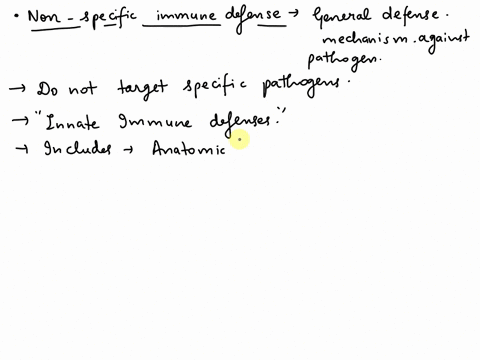 • Non-specific immune defense → General defense.
mechanism.against
pathogen.
→ Do not target specific pathogens.
→ "Innate Immune defenses."
→ Includes → Anatomic